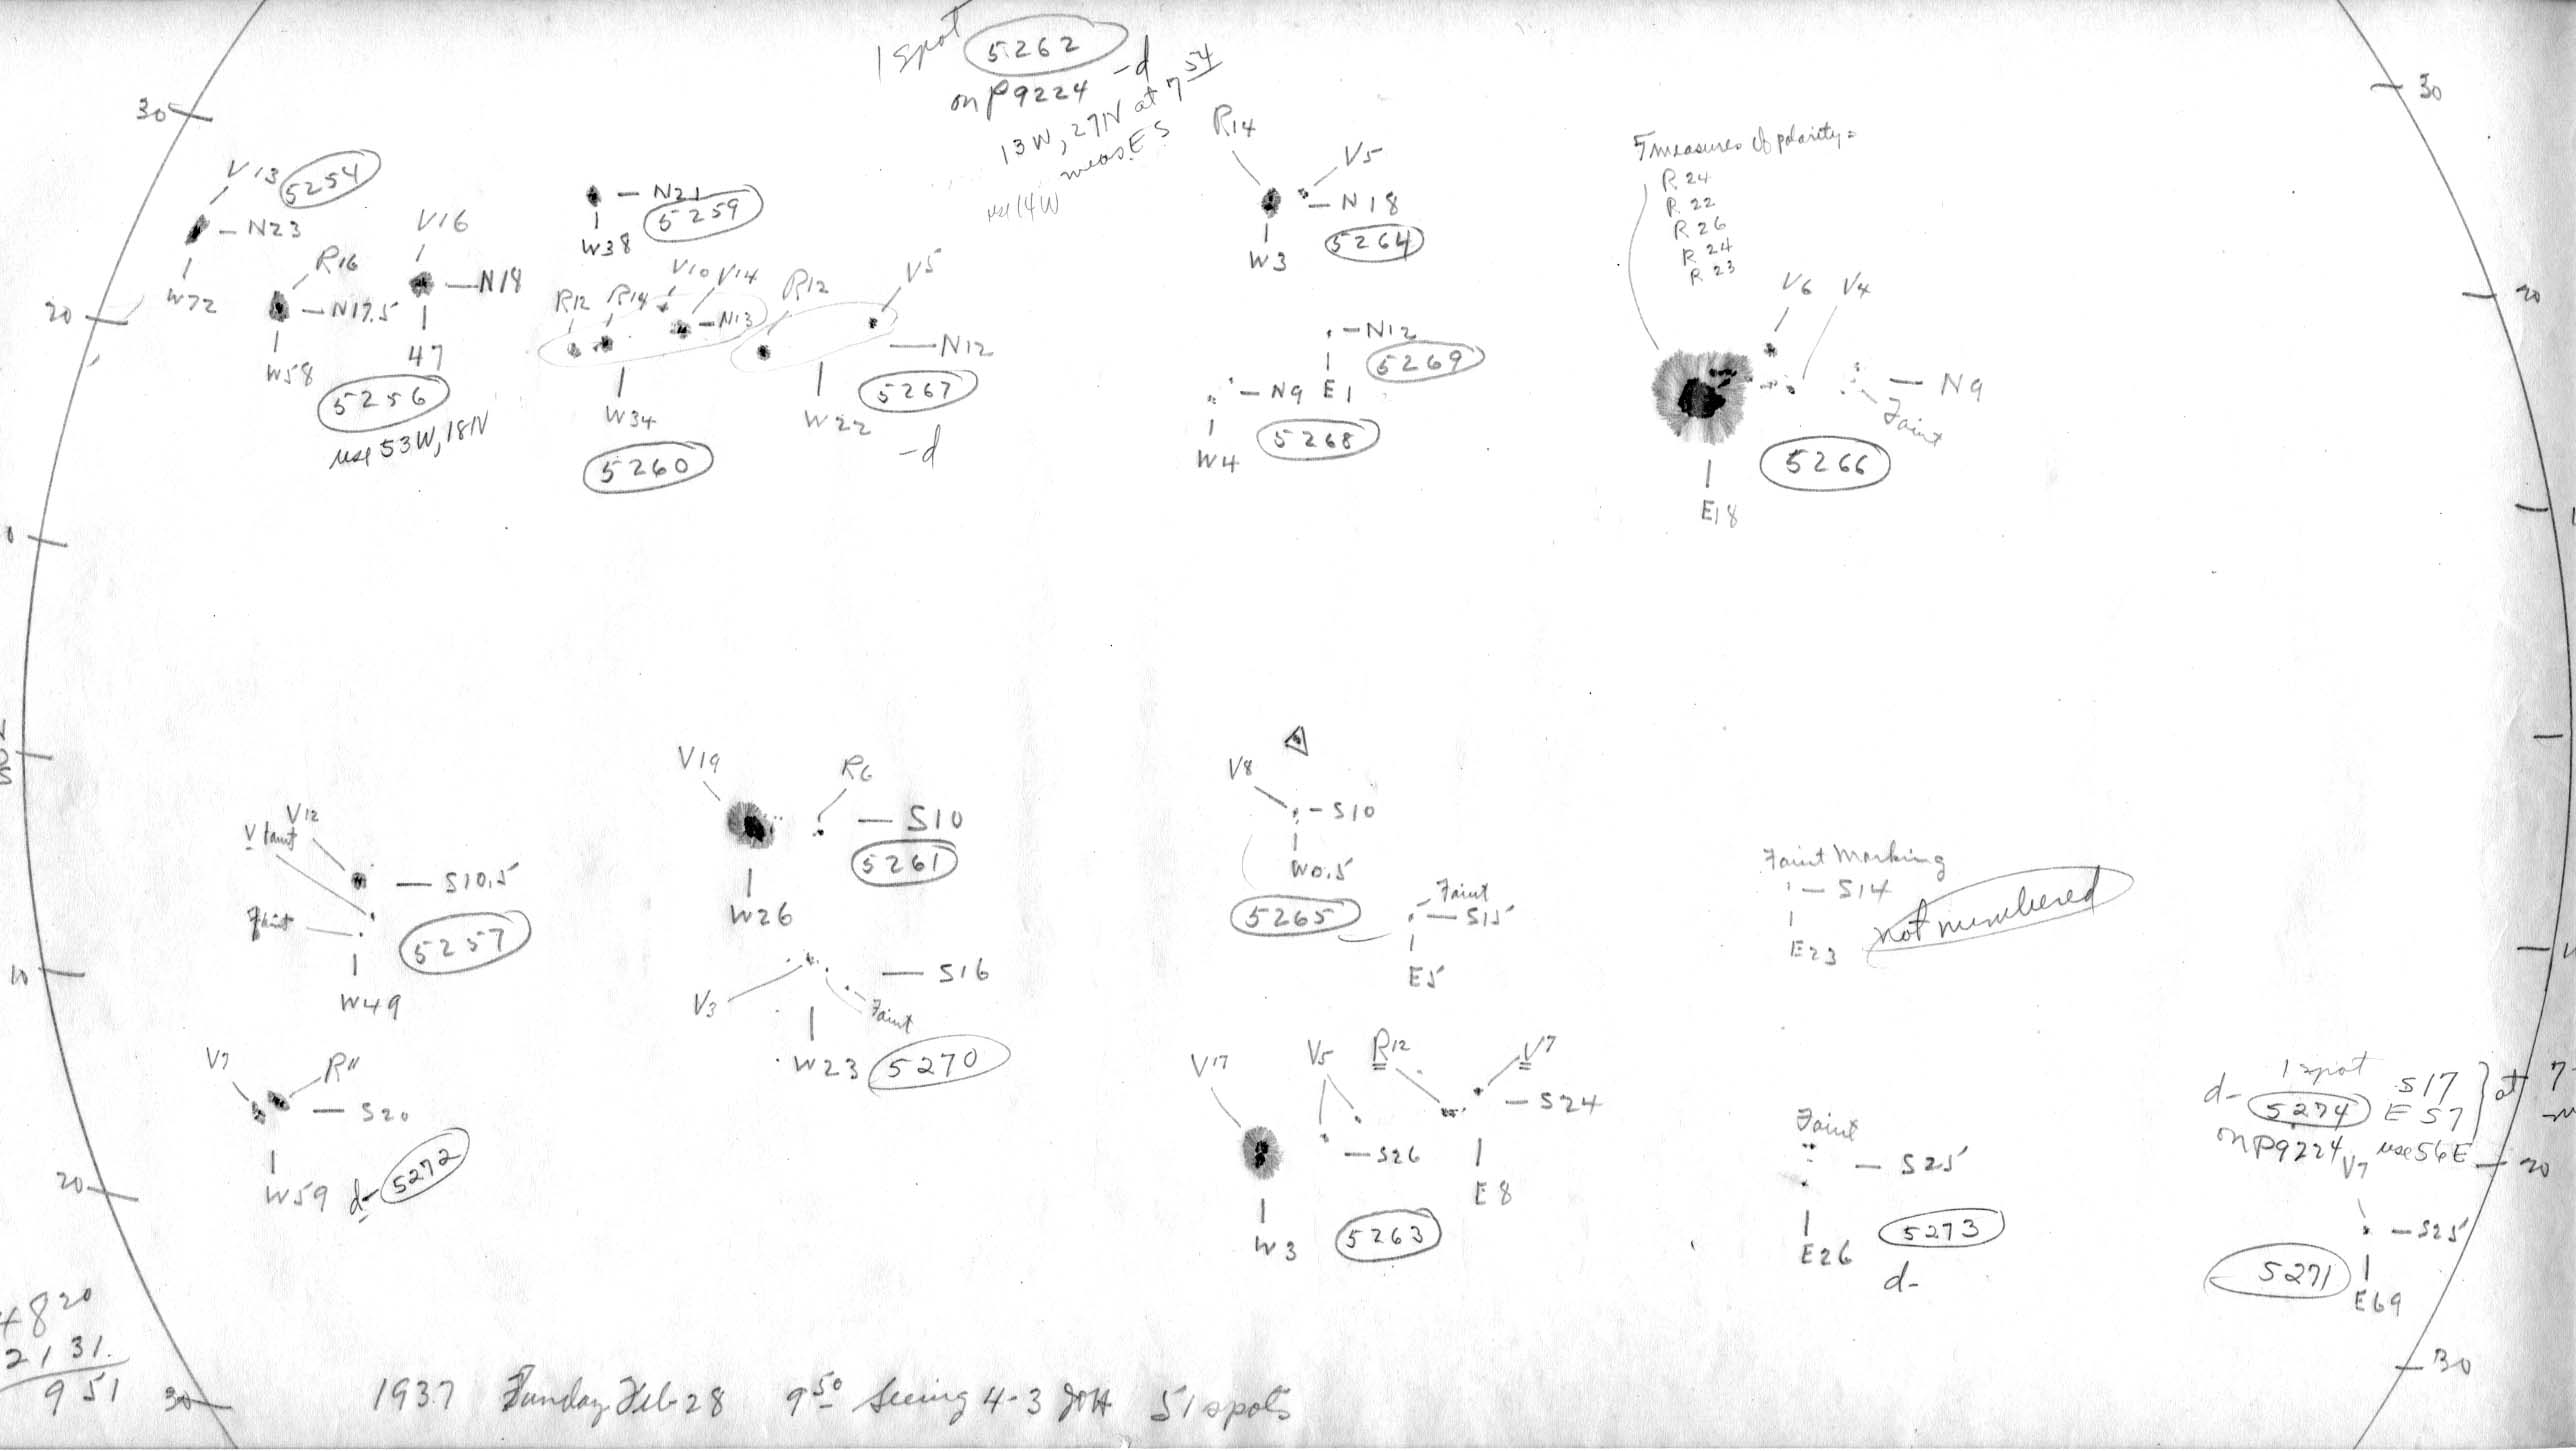 1 spot 5262 -d
on p9224
13W, 27N at 7 54
meas. E S
use 14W
30
V13 5254
N23
W72
R16
N17.5
W58
V16
N18
47
5256
use 53W, 18N
20
N21
5259
W38
R12 R14 V10 V14
N13
W34
5260
R12 V5
N12
W22
5267
-d
R14 V5
N18
W3
5264
N12
E1
5269
N9
W4
5268
5 measures of polarity =
R 24
R 22
R 26
R 24
R 23
V6 V4
N9
Faint
5266
E18
30
20
V19 R6
S10
5261
W26
V8
S10
W0.5
5265
Faint
S15
E5
Faint Marking
S14
E23
not numbered
V12
V faint
S10.5
Faint
5257
W49
10
S16
V3
Faint
W23 5270
V7 R11
S20
W59 d- 5272
20
V17 V5 R12 V7
S24
S26
E8
W3 5263
Faint
S25
E26 5273
d-
1 spot S17
d- 5274 E57 } at 7
on p9224 use 56E
20
V7
S25
5271
E69
30
+8 20
2 1 31.
9 51
30
1937 Sunday Feb 28 9 50 Seeing 4-3 JOH 51 spots